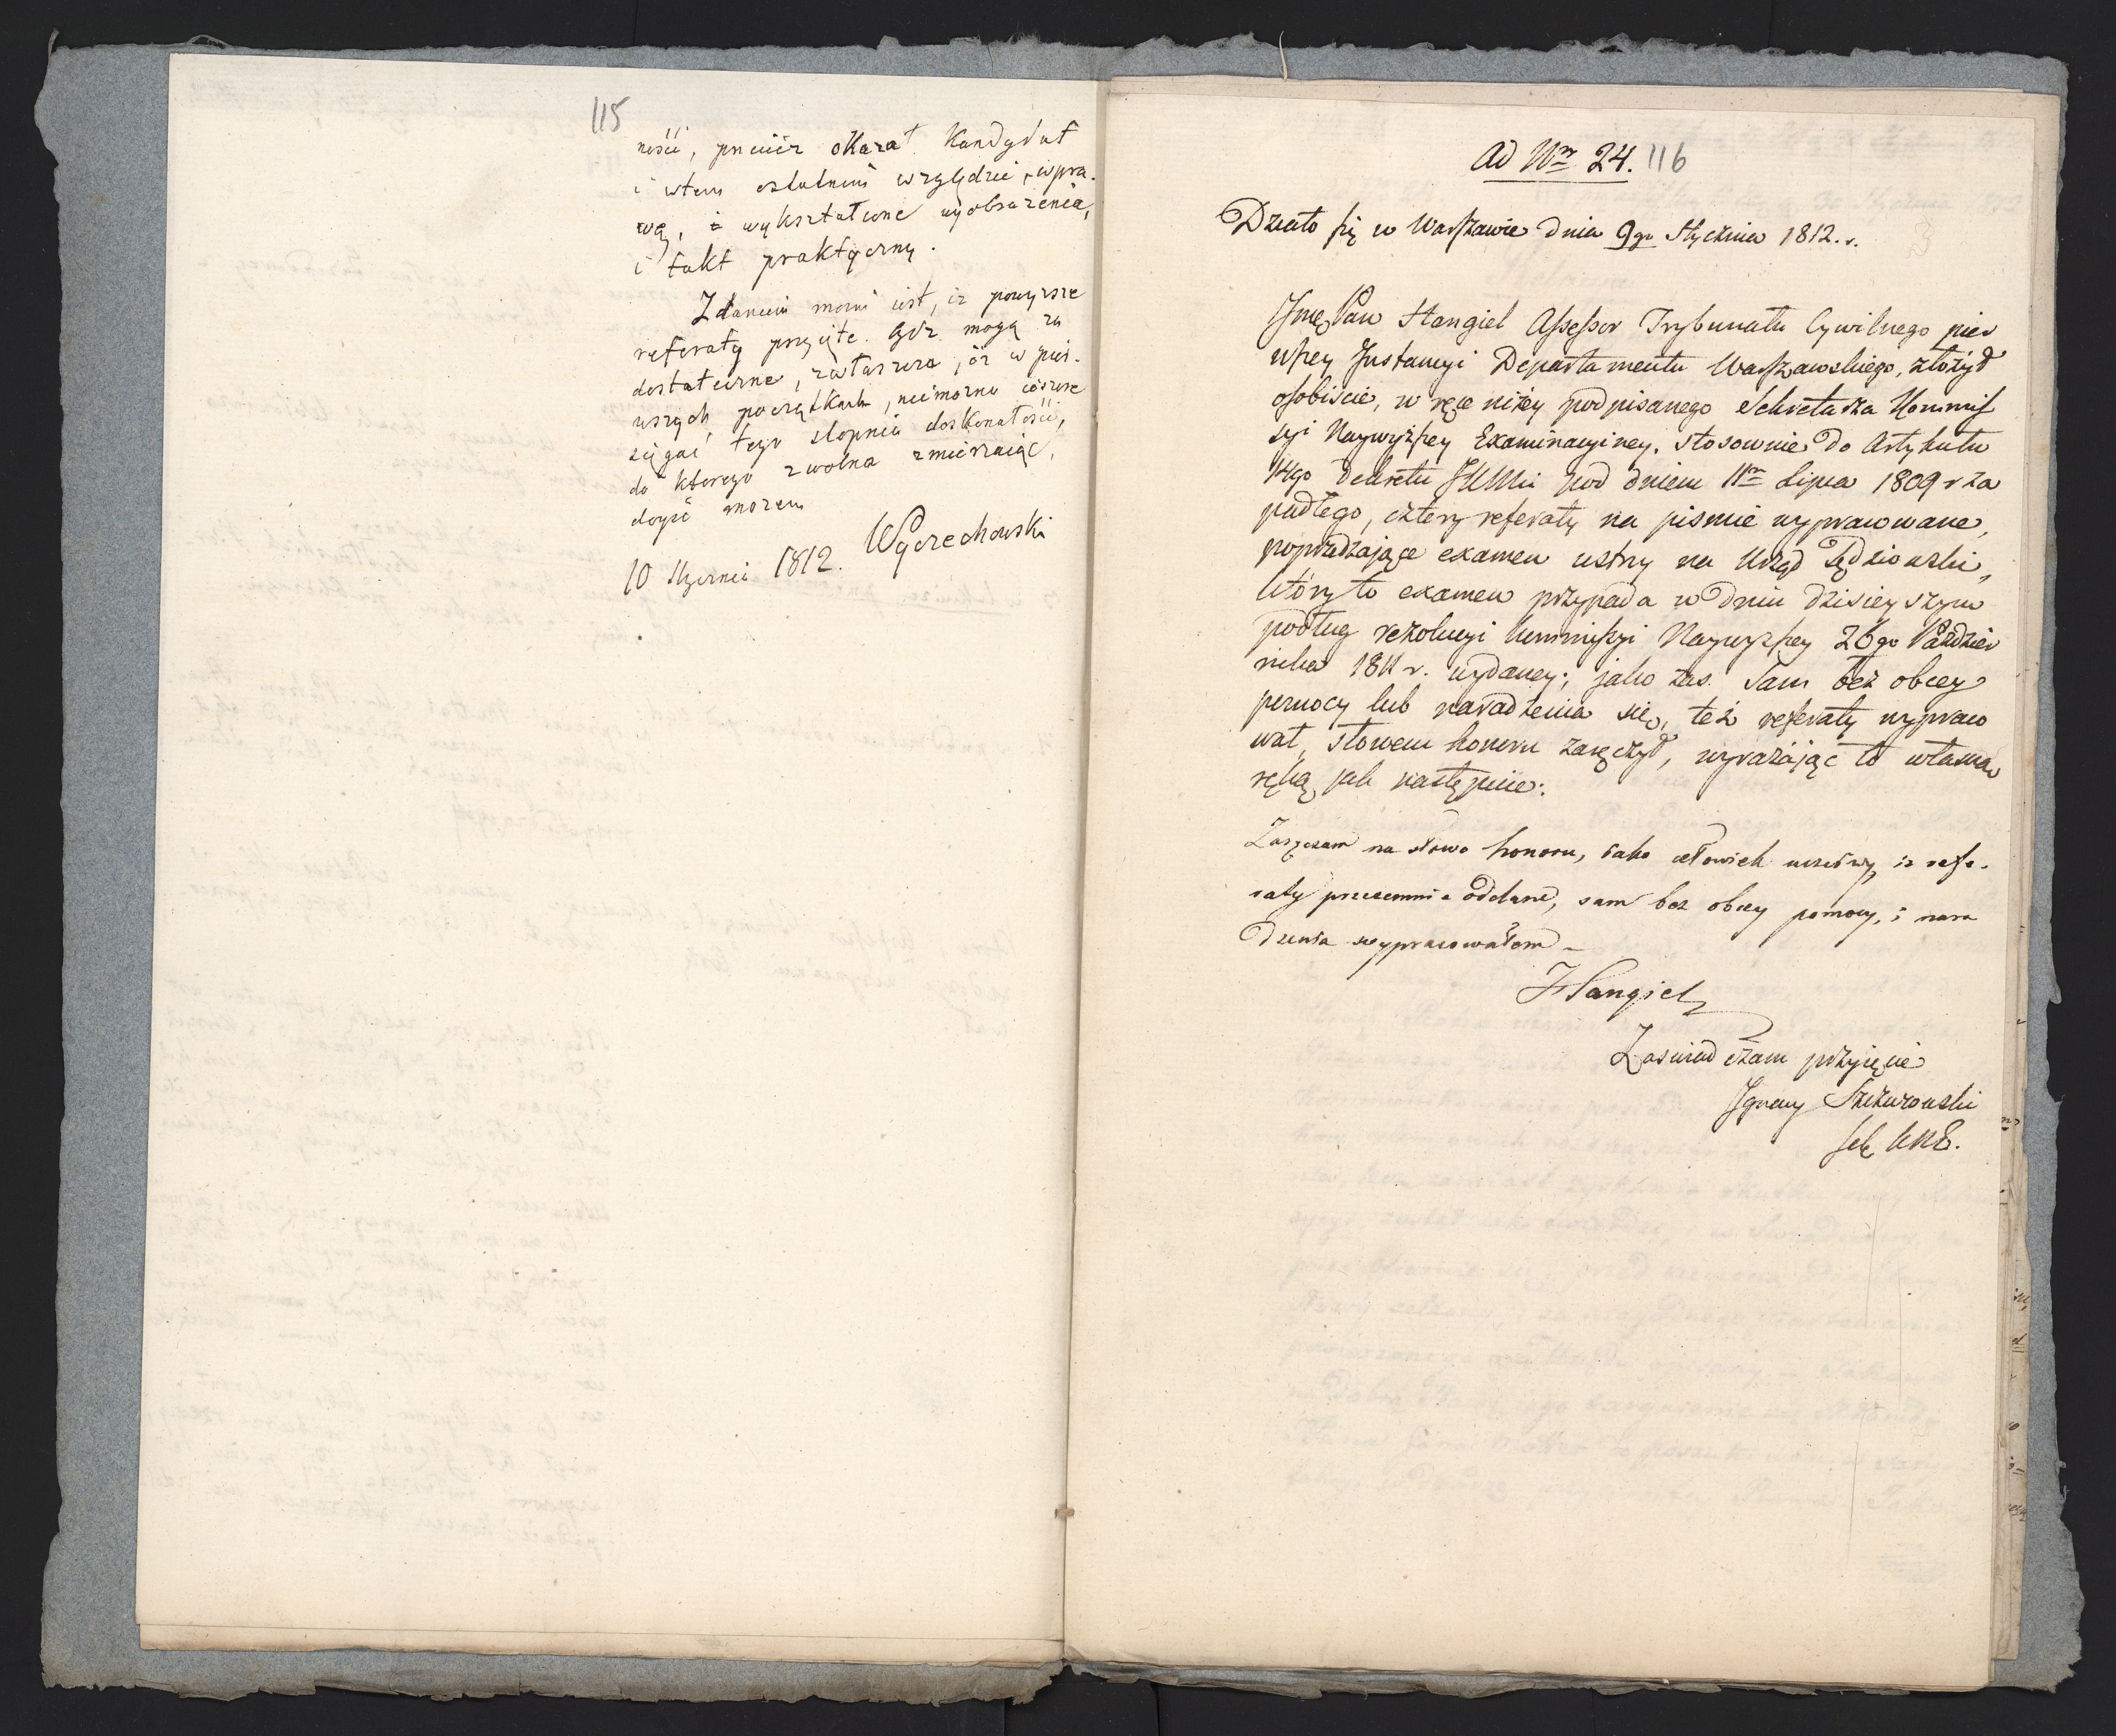 115
ności, prócz okazał Kandydat
i wtem ostatnim względzie, wpra-
wę, i wykształcone wyobrażenia,
i takt praktyczny.
Zdaniem moim iest, iż powyższe
referaty przyięte bydź mogą za
dostateczne, zwłaszcza, iż w pier-
wszych początkach, niemożna ieszcze
sięgać tego stopnia doskonałości,
do którego zwolna zmierzaiąc,
doyść możem
10 Stycznia 1812. Wyczechowski
Ad Nr 24. 116
Działo się w Warszawie dnia 9go Stycznia 1812. r.
JmćPan Stangiel Assessor Trybunału Cywilnego pier
wszey Instancyi Departamentu Warszawskiego, złożył
osobiście, w ręce niżey podpisanego Sekretarza Kommis
syi Naywyższey Examinacyiney, stosownie do Artykułu
14go Dekretu JKMci pod dniem 11m Lipca 1809 r za
padłego, cztery referaty na pismie wypracowane,
poprzedzające examen ustny na Urząd Sędziowski,
który to examen przypada w dniu dzisieyszym
podług rezolucyi Kommissyi Naywyższey 26go Paździer
nika 1811 r. wydaney; jako zaś sam bez obcey
pomocy lub naradzenia się, też referaty wypraco
wał, słowem honoru zaręczył, wyrażając to własną
ręką, jak następuie:
Zaręczam na słowo honoru, iako człowiek uczciwy, iż refe-
raty przezemnie oddane, sam bez obcey pomocy, i nara
dzenia wypracowałem –
Stangiel
Zaświadczam przyjęcie
Ignacy Szczurowski
Sek KNE.